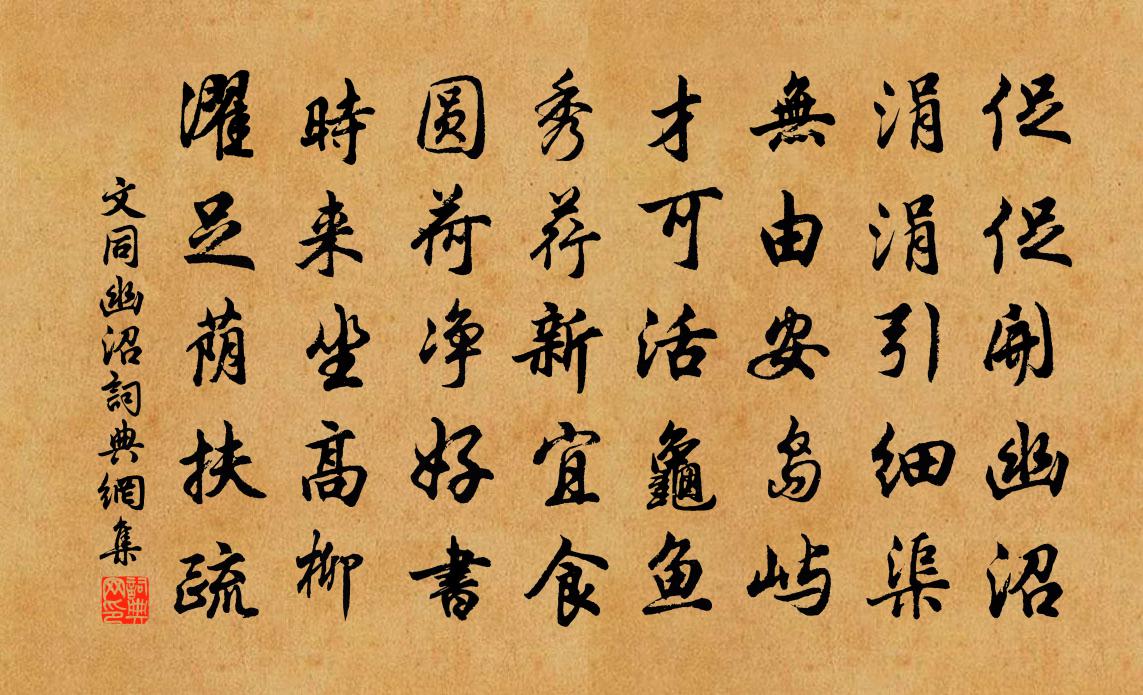 促促開幽沼
涓涓引细渠
無由安島屿
才可活龜鱼
秀荇新宜食
圆荷净好書
時来坐高柳
濯足荫扶疏
文同幽沼詞典網集
詞典网印